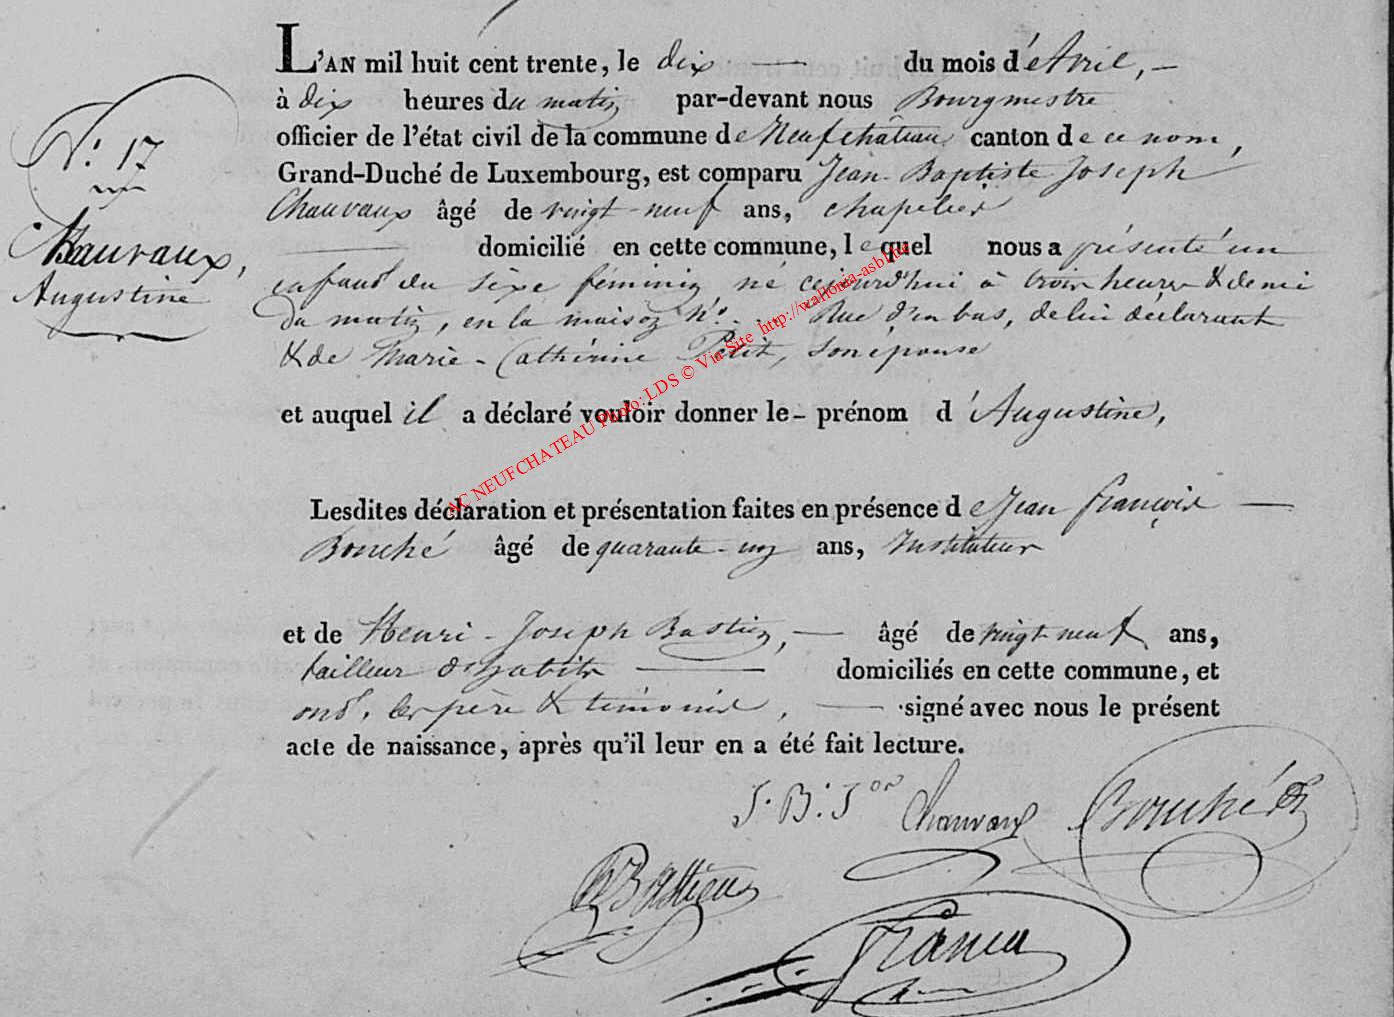 L'AN mil huit cent trente, le dix — du mois d'Avril, —
à dix heures du matin par-devant nous Bourgmestre
officier de l'état civil de la commune de Neufchâteau canton de ce nom,
Grand-Duché de Luxembourg, est comparu Jean-Baptiste Joseph
Chauvaux âgé de vingt-neuf ans, chapelier
— domicilié en cette commune, lequel nous a présenté un
enfant du sèxe féminin né cejourd'hui à trois heures & demi
du matin, en la maison N°. Rue d'en bas, de lui déclarant
& de Marie-Cathérine Petit, son épouse
et auquel il a déclaré vouloir donner le- prénom d'Augustine,
Lesdites déclaration et présentation faites en présence de Jean françois —
Bouché âgé de quarante-un ans, Instituteur
et de Henri-Joseph Bastin, — âgé de vingt-neuf ans,
tailleur d'habits — domiciliés en cette commune, et
ont, les père & témoins, — signé avec nous le présent
acte de naissance, après qu'il leur en a été fait lecture.
N°. 17
Chauvaux,
Augustine
J. B. J. Chauvaux Bouché
Bastien
AC NEUFCHATEAU Photo: LDS © Via Site http://wallonia-asbl.be